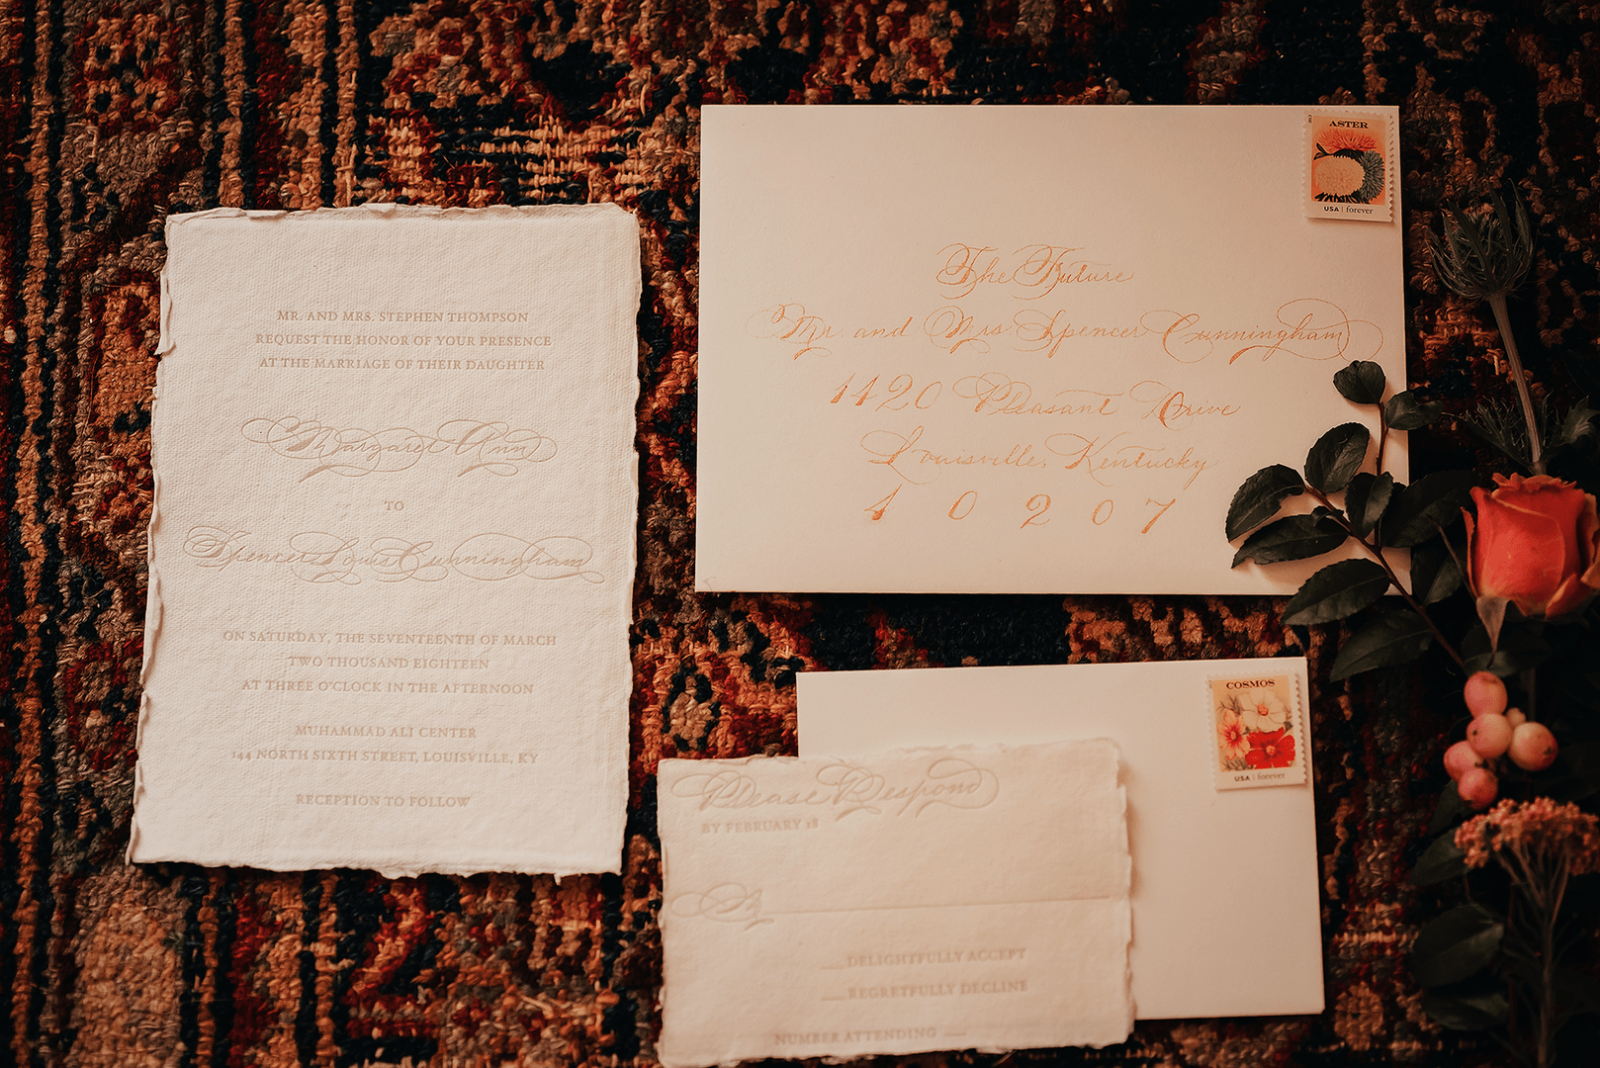 MR. AND MRS. STEPHEN THOMPSON
REQUEST THE HONOR OF YOUR PRESENCE
AT THE MARRIAGE OF THEIR DAUGHTER
Margaret Ann
TO
Spencer Louis Cunningham
ON SATURDAY, THE SEVENTEENTH OF MARCH
TWO THOUSAND EIGHTEEN
AT THREE O'CLOCK IN THE AFTERNOON
MUHAMMAD ALI CENTER
144 NORTH SIXTH STREET, LOUISVILLE, KY
RECEPTION TO FOLLOW
ASTER
USA | forever
The Future
Mr. and Mrs Spencer Cunningham
1420 Pleasant Drive
Louisville, Kentucky
10207
COSMOS
USA | forever
Please Respond
BY FEBRUARY 18
M
__ DELIGHTFULLY ACCEPT
__ REGRETFULLY DECLINE
NUMBER ATTENDING __